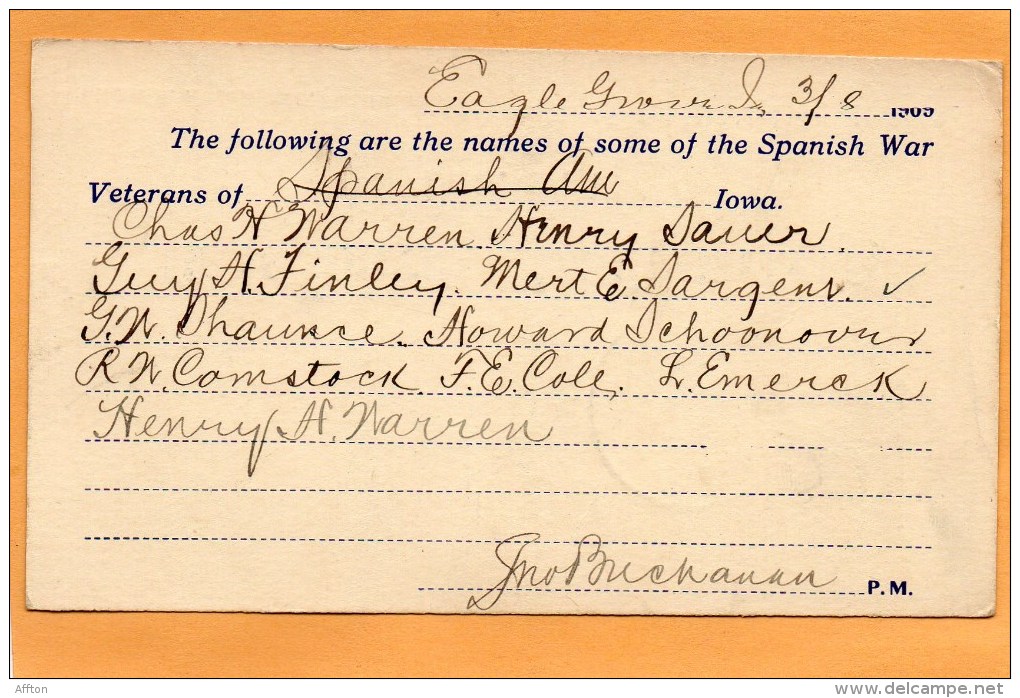 Eagle Grove Ia, 3/8 1909
The following are the names of some of the Spanish War
Veterans of Spanish Am Iowa.
Chas H Warren. Henry Sauer.
Guy H. Finley. Mert E. Sargent. ✓
G.W. Howard Schoonover
R W. Comstock. F.E. Cole, L. Emerck
Henry H. Warren
Jno Buchanan P.M.
Affton
www.delcampe.net